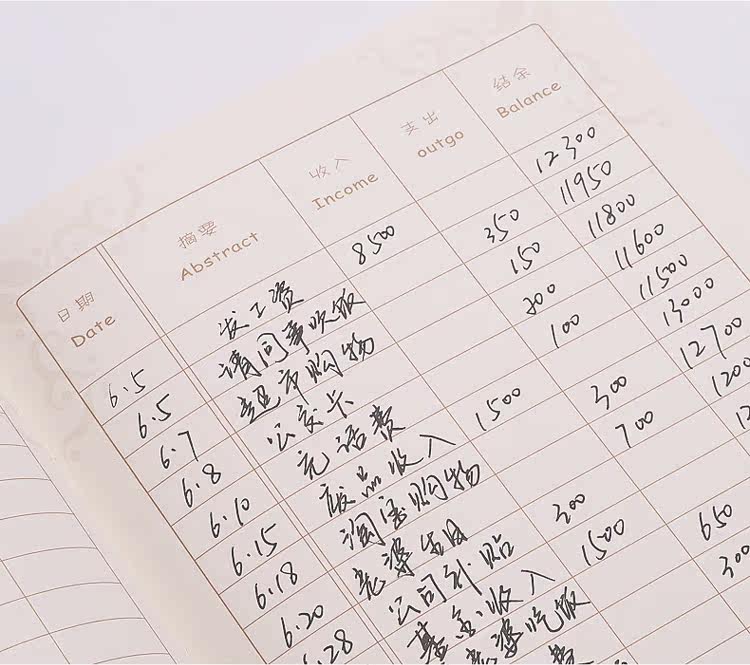 日期 摘要 收入 支出 结余
Date Abstract Income outgo Balance
6.5 发工资 8500 12300
6.5 请同事吃饭 350 11950
6.7 超市购物 150 11800
6.8 公交卡 200 11600
6.10 充话费 100 11500
6.15 废品收入 1500 13000
6.18 淘宝购物 300 12700
6.20 老婆生日 700 1200
6.28 公司补贴 200 12
基金收入 1500
老婆吃饭 650
费 300